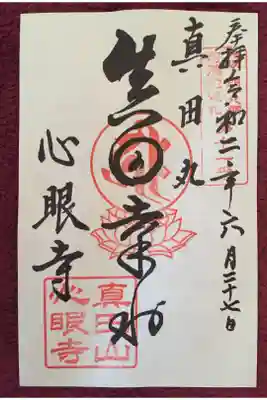 奉拝 令和二年六月二十七日
真田丸
真田幸村
心眼寺
真田山
心眼寺